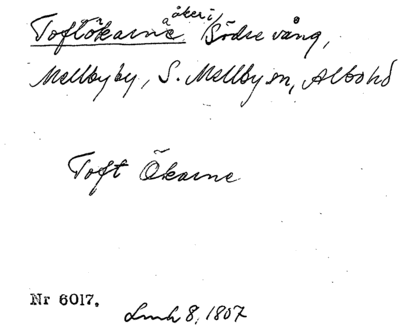 Toftökarne åker i Södre vång,
Mellbyby, S. Mellby sn, Albo hd
Toft Ökarne
Nr 6017.
Lmh 8, 1807